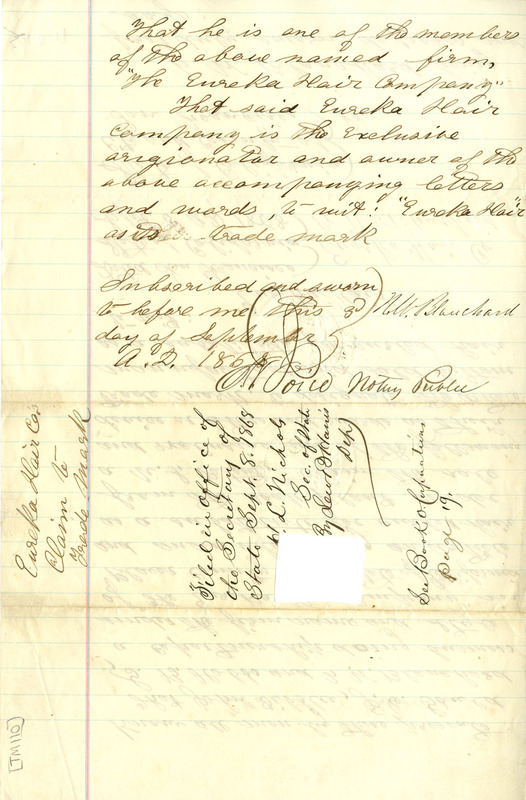 That he is one of the members
of the above named firm,
"The Eureka Hair Company"
That said Eureka Hair
Company is the exclusive
origionator and owner of the
above accompanying letters
and words, to wit: "Eureka Hair"
as trade mark
Subscribed and sworn
to before me this 3d
day of September
A.D. 1868
Blanchard
Notary Public
Eureka Hair Co.
Claim to
Trade Mark
Filed in Office of
the Secretary of
State Sept. 8. 1868
H. L. Nichols
Sec. of State
By Lew B Harris
Dep.
See Book Corporations
Page 19.
[TM110]